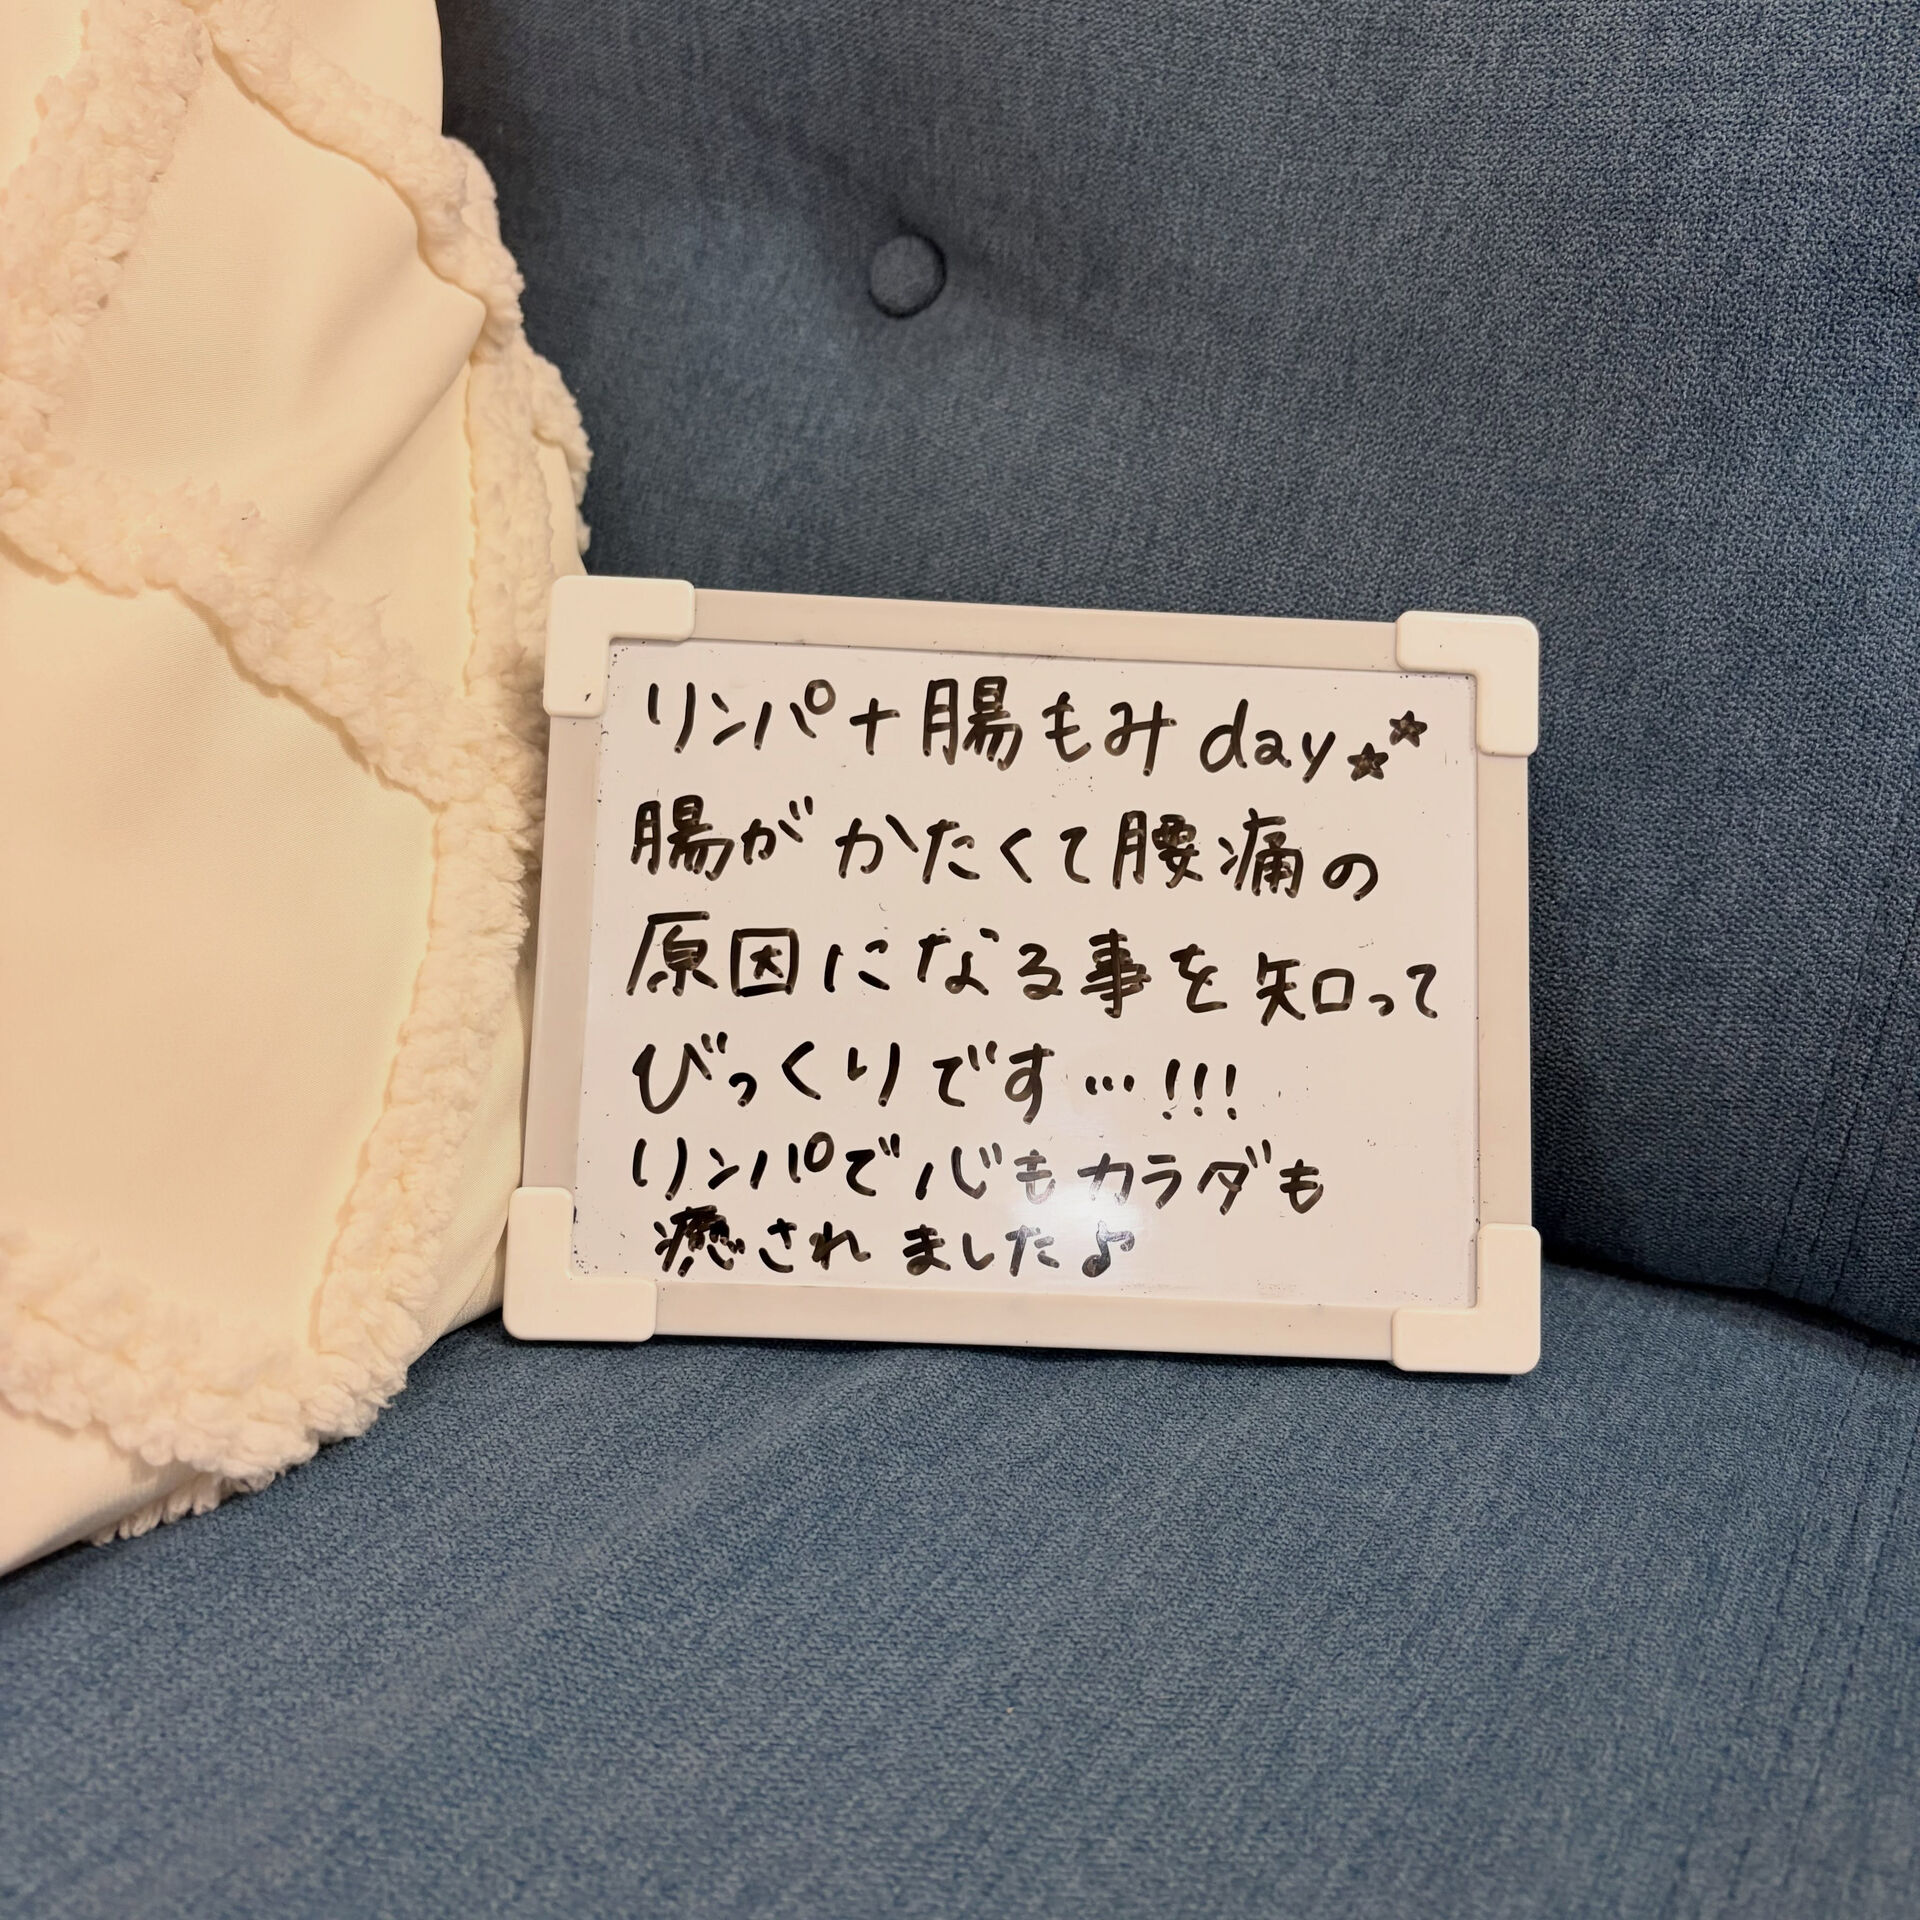 リンパ+腸もみday★★
腸がかたくて腰痛の
原因になる事を知って
びっくりです…!!!
リンパで心もカラダも
癒されました♪